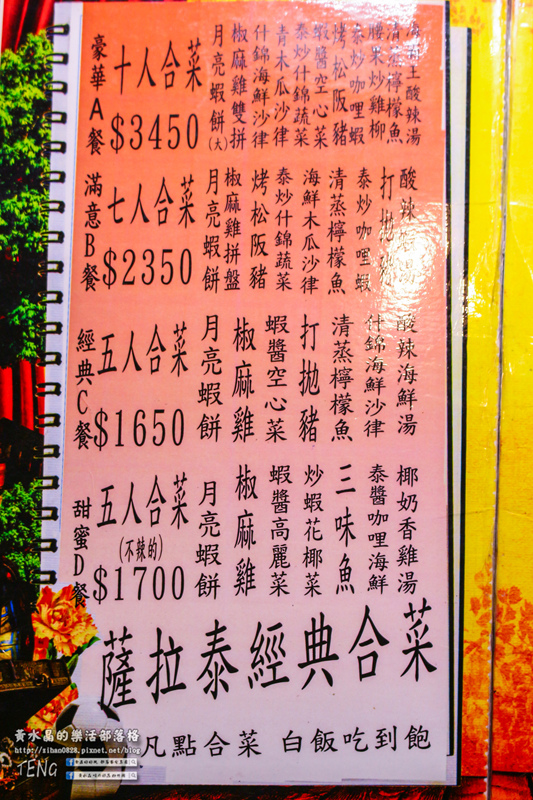 豪華A餐
十人合菜
$3450
月亮蝦餅(大)
椒麻雞雙拼
什錦海鮮沙律
青木瓜沙律
泰炒什錦蔬菜
蝦醬空心菜
烤松阪豬
泰炒咖哩蝦
腰果炒雞柳
清蒸檸檬魚
王酸辣湯
滿意B餐
七人合菜
$2350
月亮蝦餅
椒麻雞拼盤
烤松阪豬
泰炒什錦蔬菜
海鮮木瓜沙律
清蒸檸檬魚
泰炒咖哩蝦
打拋
酸辣 湯
經典C餐
五人合菜
$1650
月亮蝦餅
椒麻雞
蝦醬空心菜
打拋豬
清蒸檸檬魚
什錦海鮮沙律
酸辣海鮮湯
甜蜜D餐
五人合菜
(不辣的)
$1700
月亮蝦餅
椒麻雞
蝦醬高麗菜
炒蝦花椰菜
三味魚
泰醬咖哩海鮮
椰奶香雞湯
薩拉泰經典合菜
凡點合菜 白飯吃到飽
黃水晶的樂活部落格
http://sihan0828.pixnet.net/blog
TENG